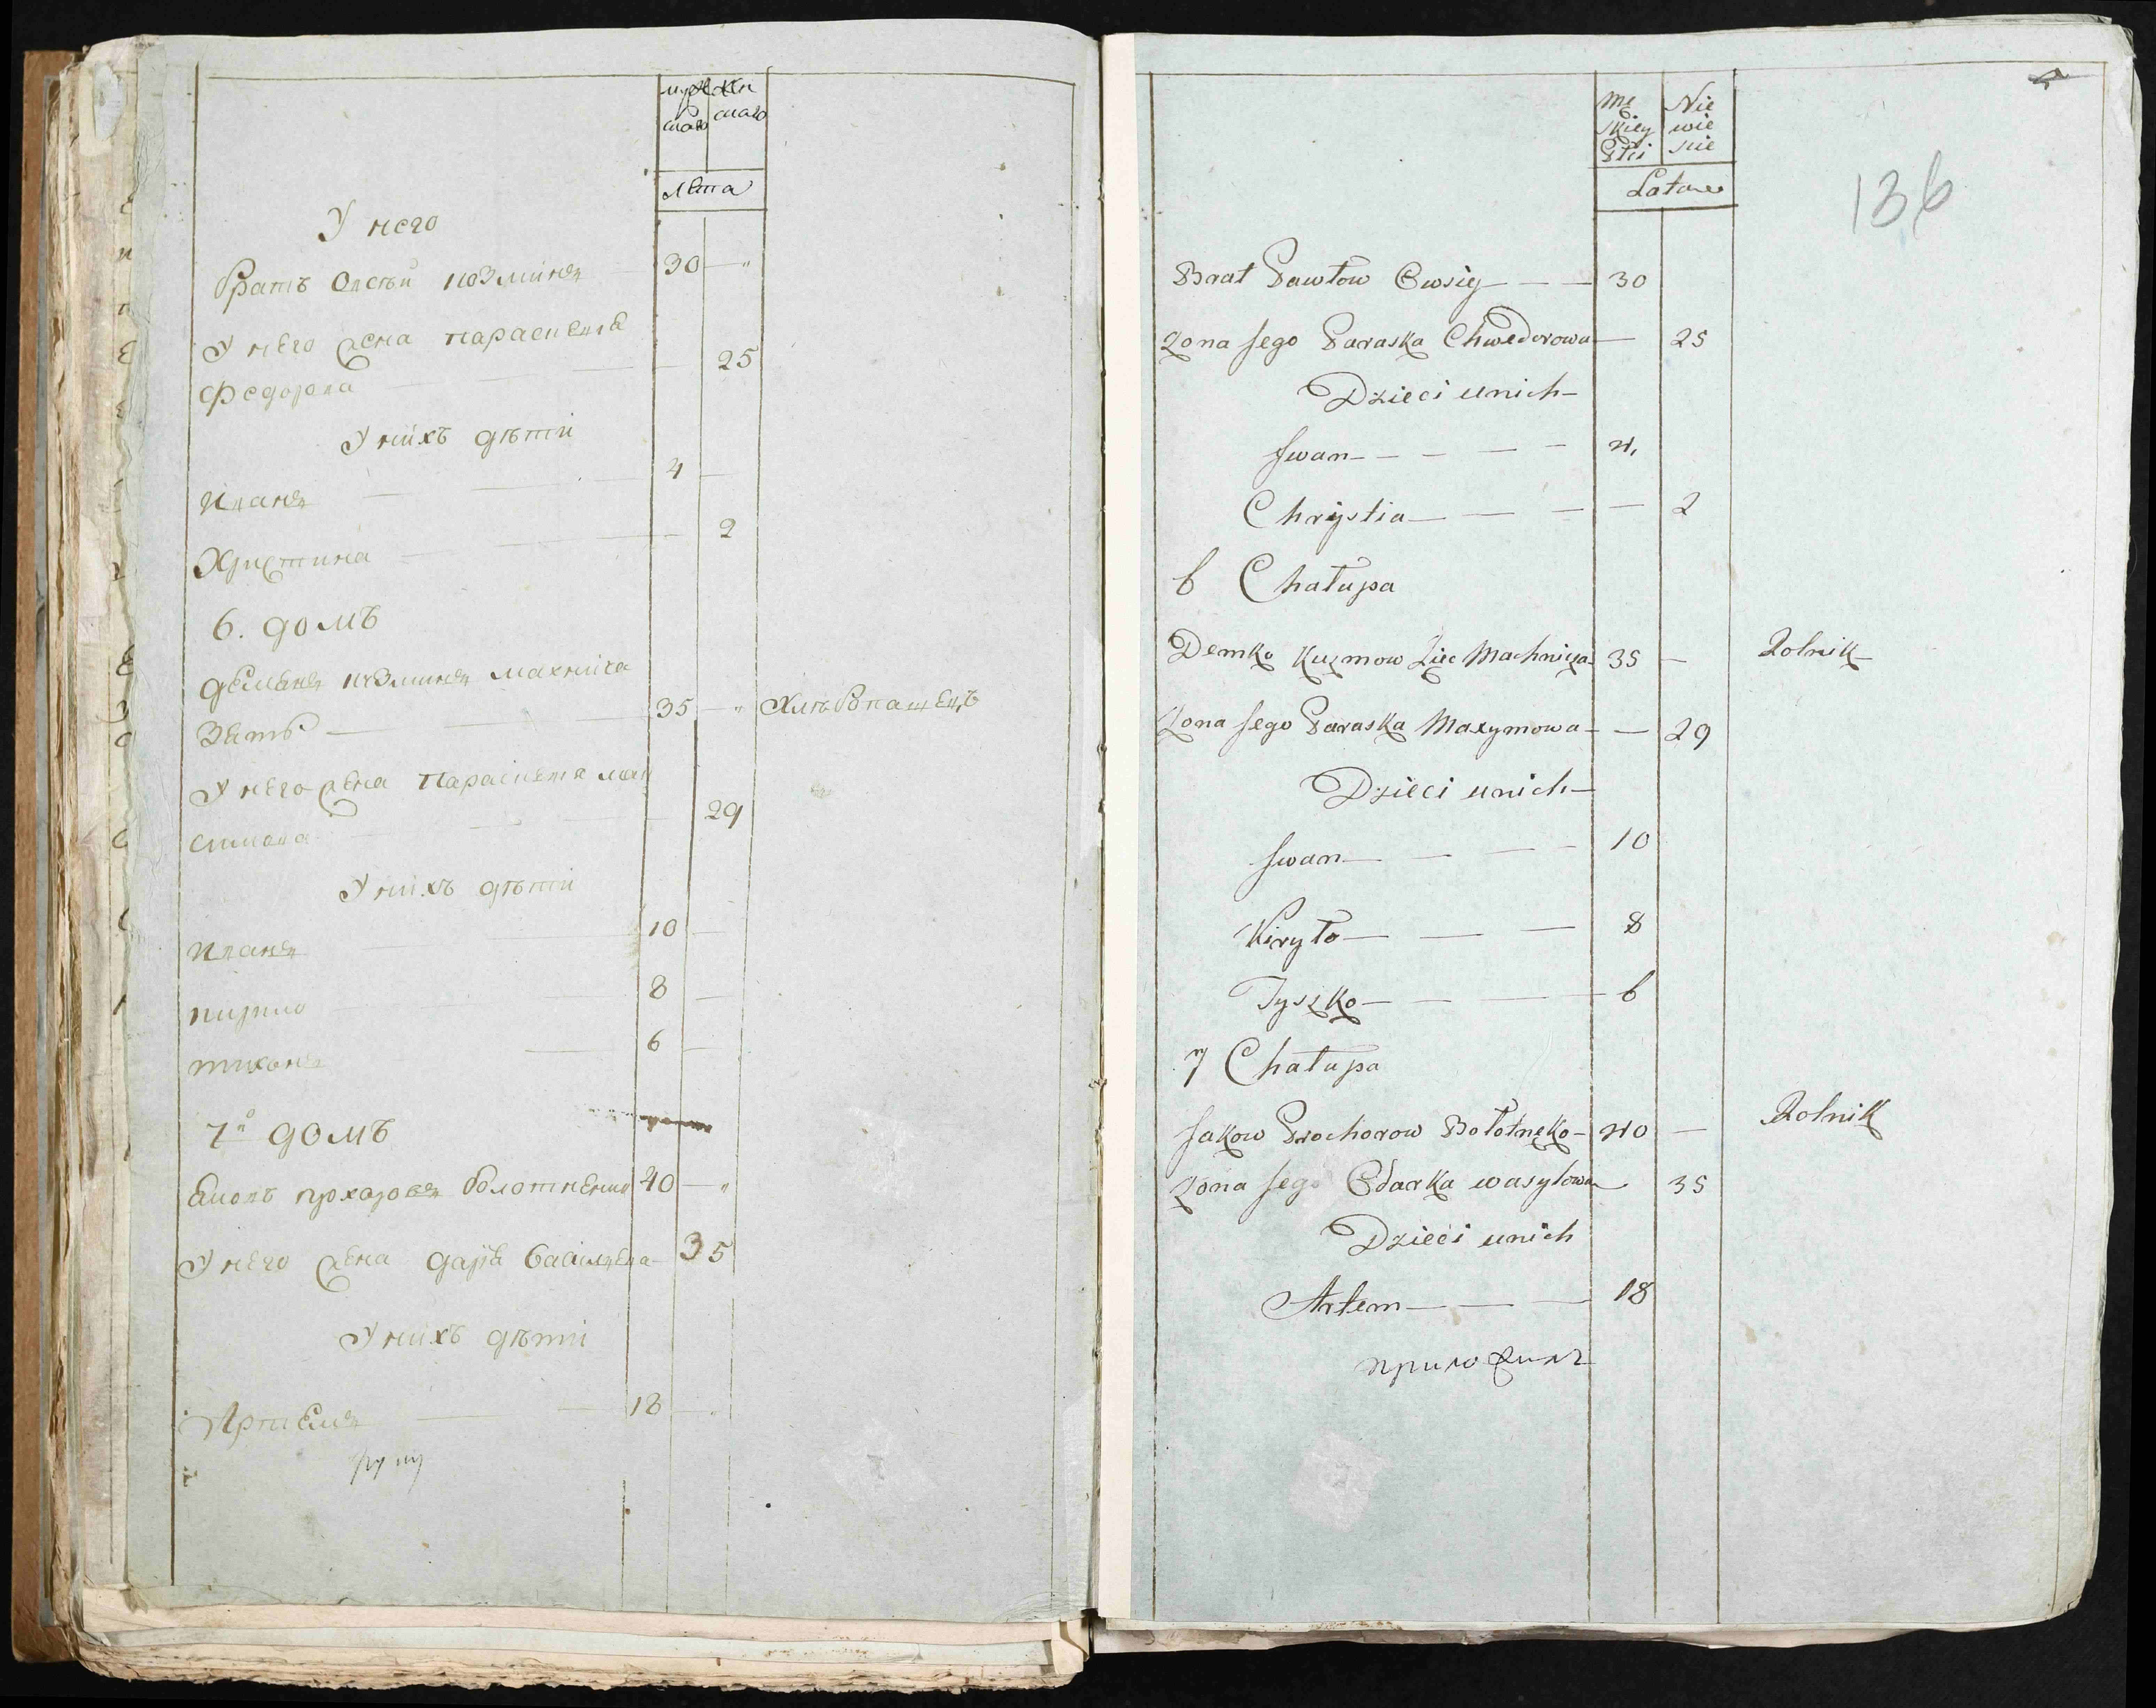 муж жен
ска ска
Лѣта
У него
братъ Овсѣй Козминъ 30 — "
У него жена Параскева
Федорова — 25
У нихъ дѣти
Иванъ — 4 —
Христина — 2
6. домъ
Демьянъ Козминъ Махнича
Зять — 35 — " Хлѣбопашецъ
У него жена Параскева Мак
симова — 29
У нихъ дѣти
Иванъ — 10 —
Кирило — 8 —
Тихонъ — 6 —
7й домъ
Яковъ Прохоровъ Болотненко 40 — "
У него жена Дарья Васильева 35
У нихъ дѣти
Артемъ — 18 — "
Mę Nie
skiey wie
Płci skie
Lata
136
Brat Pawłow Owsiy — — 30
Żona Jego Paraska Chwedorowa — 25
Dzieci unich —
Jwan — — — — 4
Chrystia — — — — 2
6 Chałupa
Demko Kuzmow Zięc Machnicza 35 — Rolnik
Żona Jego Paraska Maxymowa — — 29
Dzieci unich —
Jwan — — — — 10
Kiryło — — — 8
Tyszko — — — — 6
7 Chałupa
Jakow Prochorow Bołotnęko — 40 — Rolnik
Żona Jego Odarka wasylowa — 35
Dzieci unich
Artem — — — 18
приложилъ